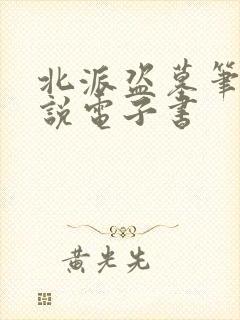 北派盗墓筆
說電子書
黃光先